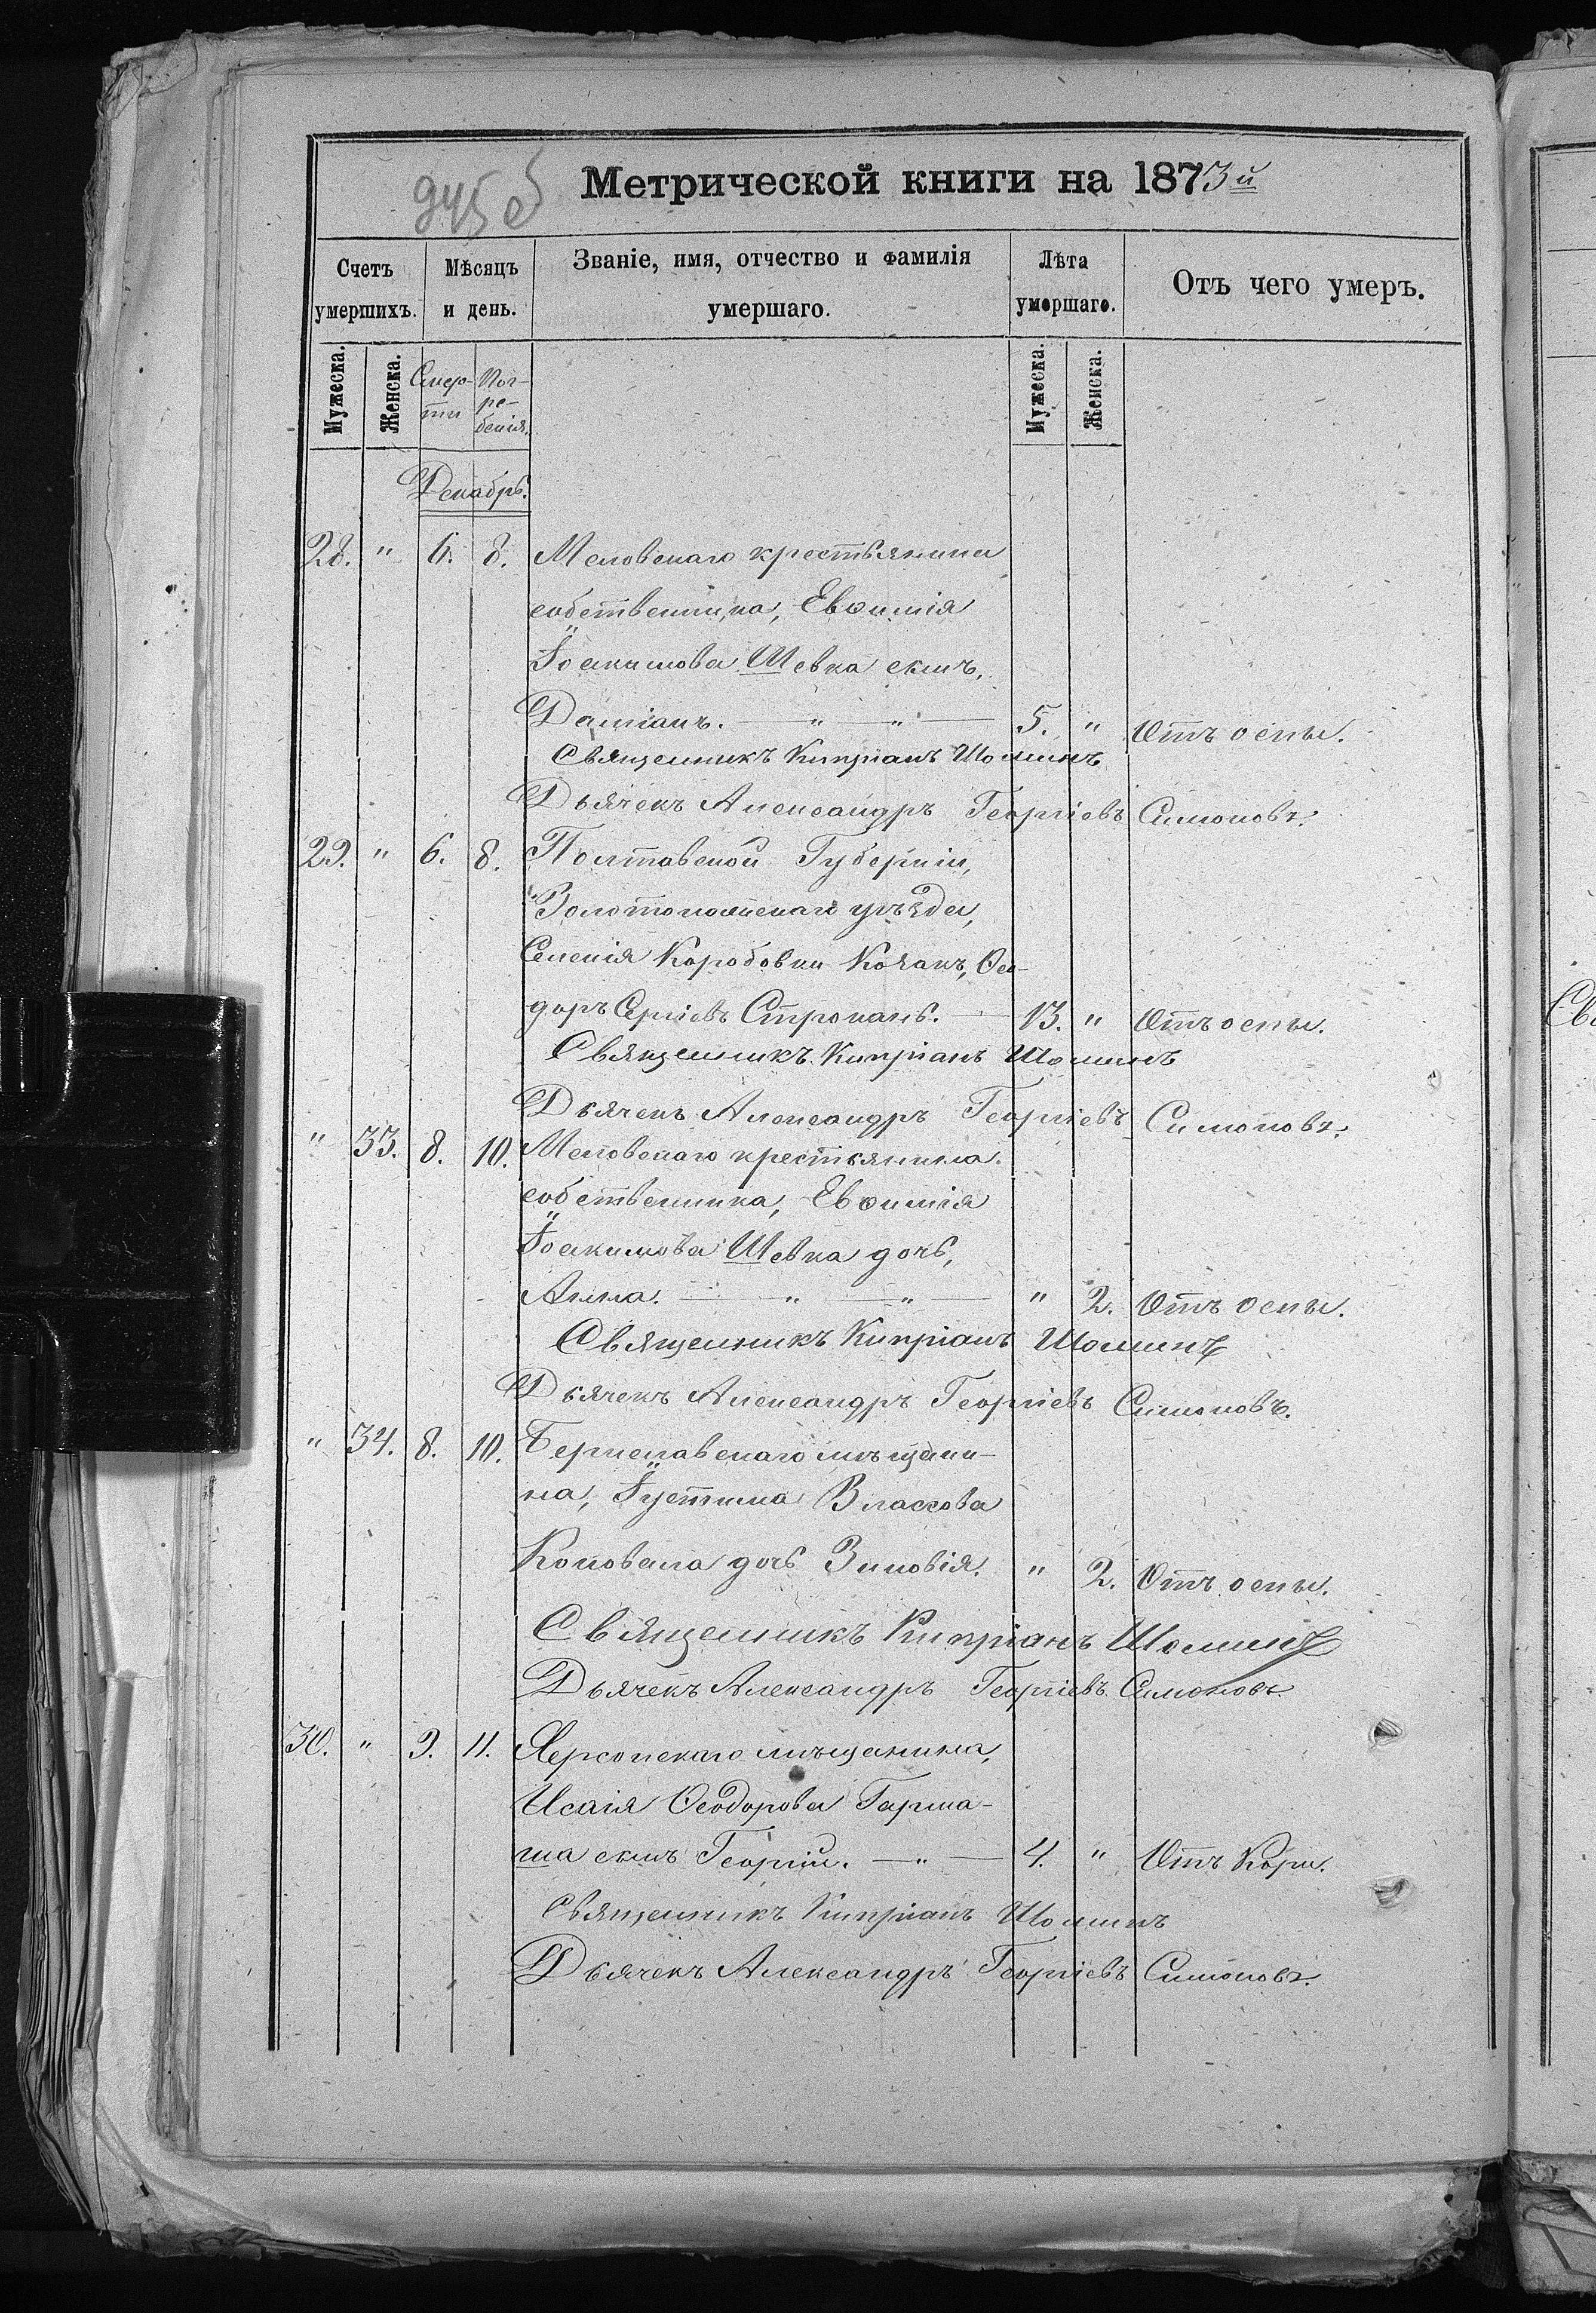 945 об
Метрической книги на 1873й
Счетъ умершихъ. Мѣсяцъ и день. Званіе, имя, отчество и фамилія умершаго. Лѣта умершаго. Отъ чего умеръ.
Мужеска. Женска. Смерти Погребенія. Мужеска. Женска.
Декабрь.
28. " 6. 8. Меловскаго крестьянина
собственника, Евѳимія
Іоакимова Шевка сынъ,
Даміанъ. — " — " — 5. " Отъ оспы.
Священникъ Кипріанъ Шоминъ
Дьячекъ Александръ Георгіевъ Симоновъ.
29. " 6. 8. Полтавской Губерніи,
Золотоношскаго уѣзда,
Селенія Коробовки Козакъ, Ѳео-
доръ Сергіевъ Строкань. — 13. " Отъ оспы.
Священникъ Кипріанъ Шоминъ
Дьячекъ Александръ Георгіевъ Симоновъ.
" 33. 8. 10. Меловскаго крестьянина
собственника, Евѳимія
Іоакимова Шевка дочь,
Анна. — " — " — " 2. Отъ оспы.
Священникъ Кипріанъ Шоминъ
Дьячекъ Александръ Георгіевъ Симоновъ.
" 34. 8. 10. Бериславскаго мѣщани-
на, Іустина Власова
Коновала дочь Зиновія. " 2. Отъ оспы.
Священникъ Кипріанъ Шоминъ
Дьячекъ Александръ Георгіевъ Симоновъ.
30. " 9. 11. Херсонскаго мѣщанина,
Исаія Ѳеодорова Гарма-
ша сынъ Георгій. — " — 4. " Отъ Кори.
Священникъ Кипріанъ Шоминъ
Дьячекъ Александръ Георгіевъ Симоновъ.